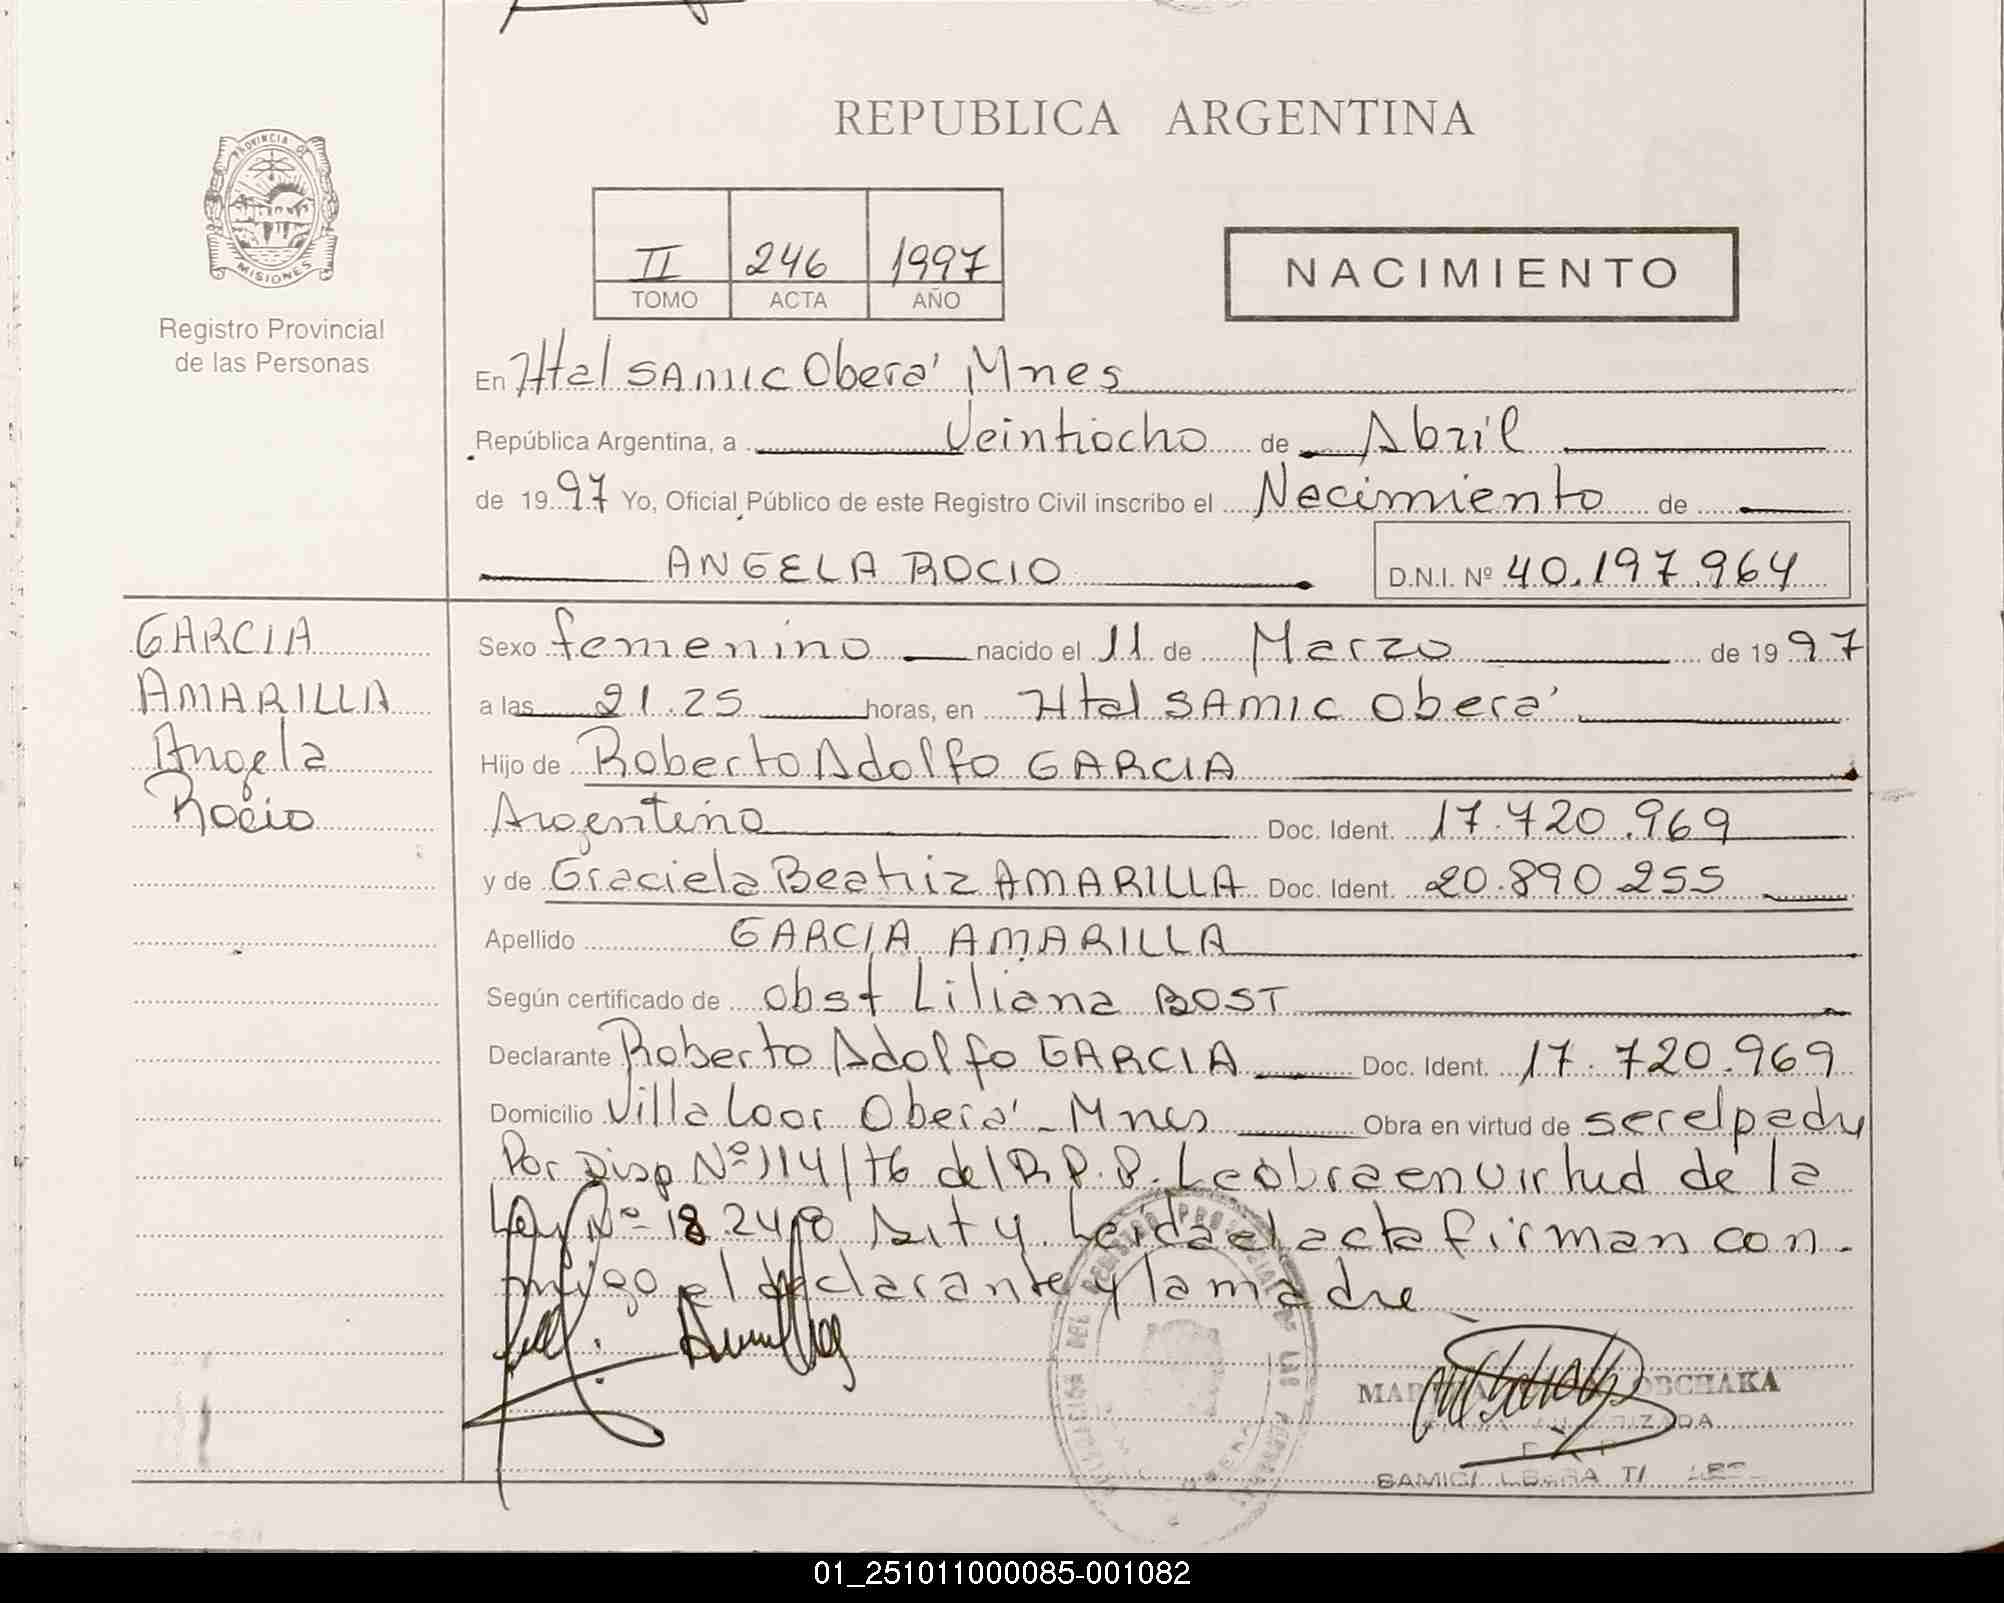 PROVINCIA DE
MISIONES
Registro Provincial
de las Personas
REPUBLICA ARGENTINA
II 246 1997
TOMO ACTA AÑO
NACIMIENTO
En Htal SAMIC Oberá Mnes
República Argentina, a Veintiocho de Abril
de 1997 Yo, Oficial Público de este Registro Civil inscribo el Nacimiento de
ANGELA ROCIO D.N.I. Nº 40.197.964
GARCIA
AMARILLA
Angela
Rocio
Sexo femenino nacido el 11 de Marzo de 1997
a las 21.25 horas, en Htal SAMIC Oberá
Hijo de Roberto Adolfo GARCIA
Argentino Doc. Ident. 17.720.969
y de Graciela Beatriz AMARILLA Doc. Ident. 20.890.255
Apellido GARCIA AMARILLA
Según certificado de Obst Liliana BOST
Declarante Roberto Adolfo GARCIA Doc. Ident. 17.720.969
Domicilio Villa Loor Oberá - Mnes Obra en virtud de ser el padre
Por Disp Nº 114/76 del R.P.P. La obra en virtud de la
Ley Nº 18.248 Art 4. Leída el acta firman con-
migo el declarante y la madre
OBCHAKA
SAMIC
01_251011000085-001082